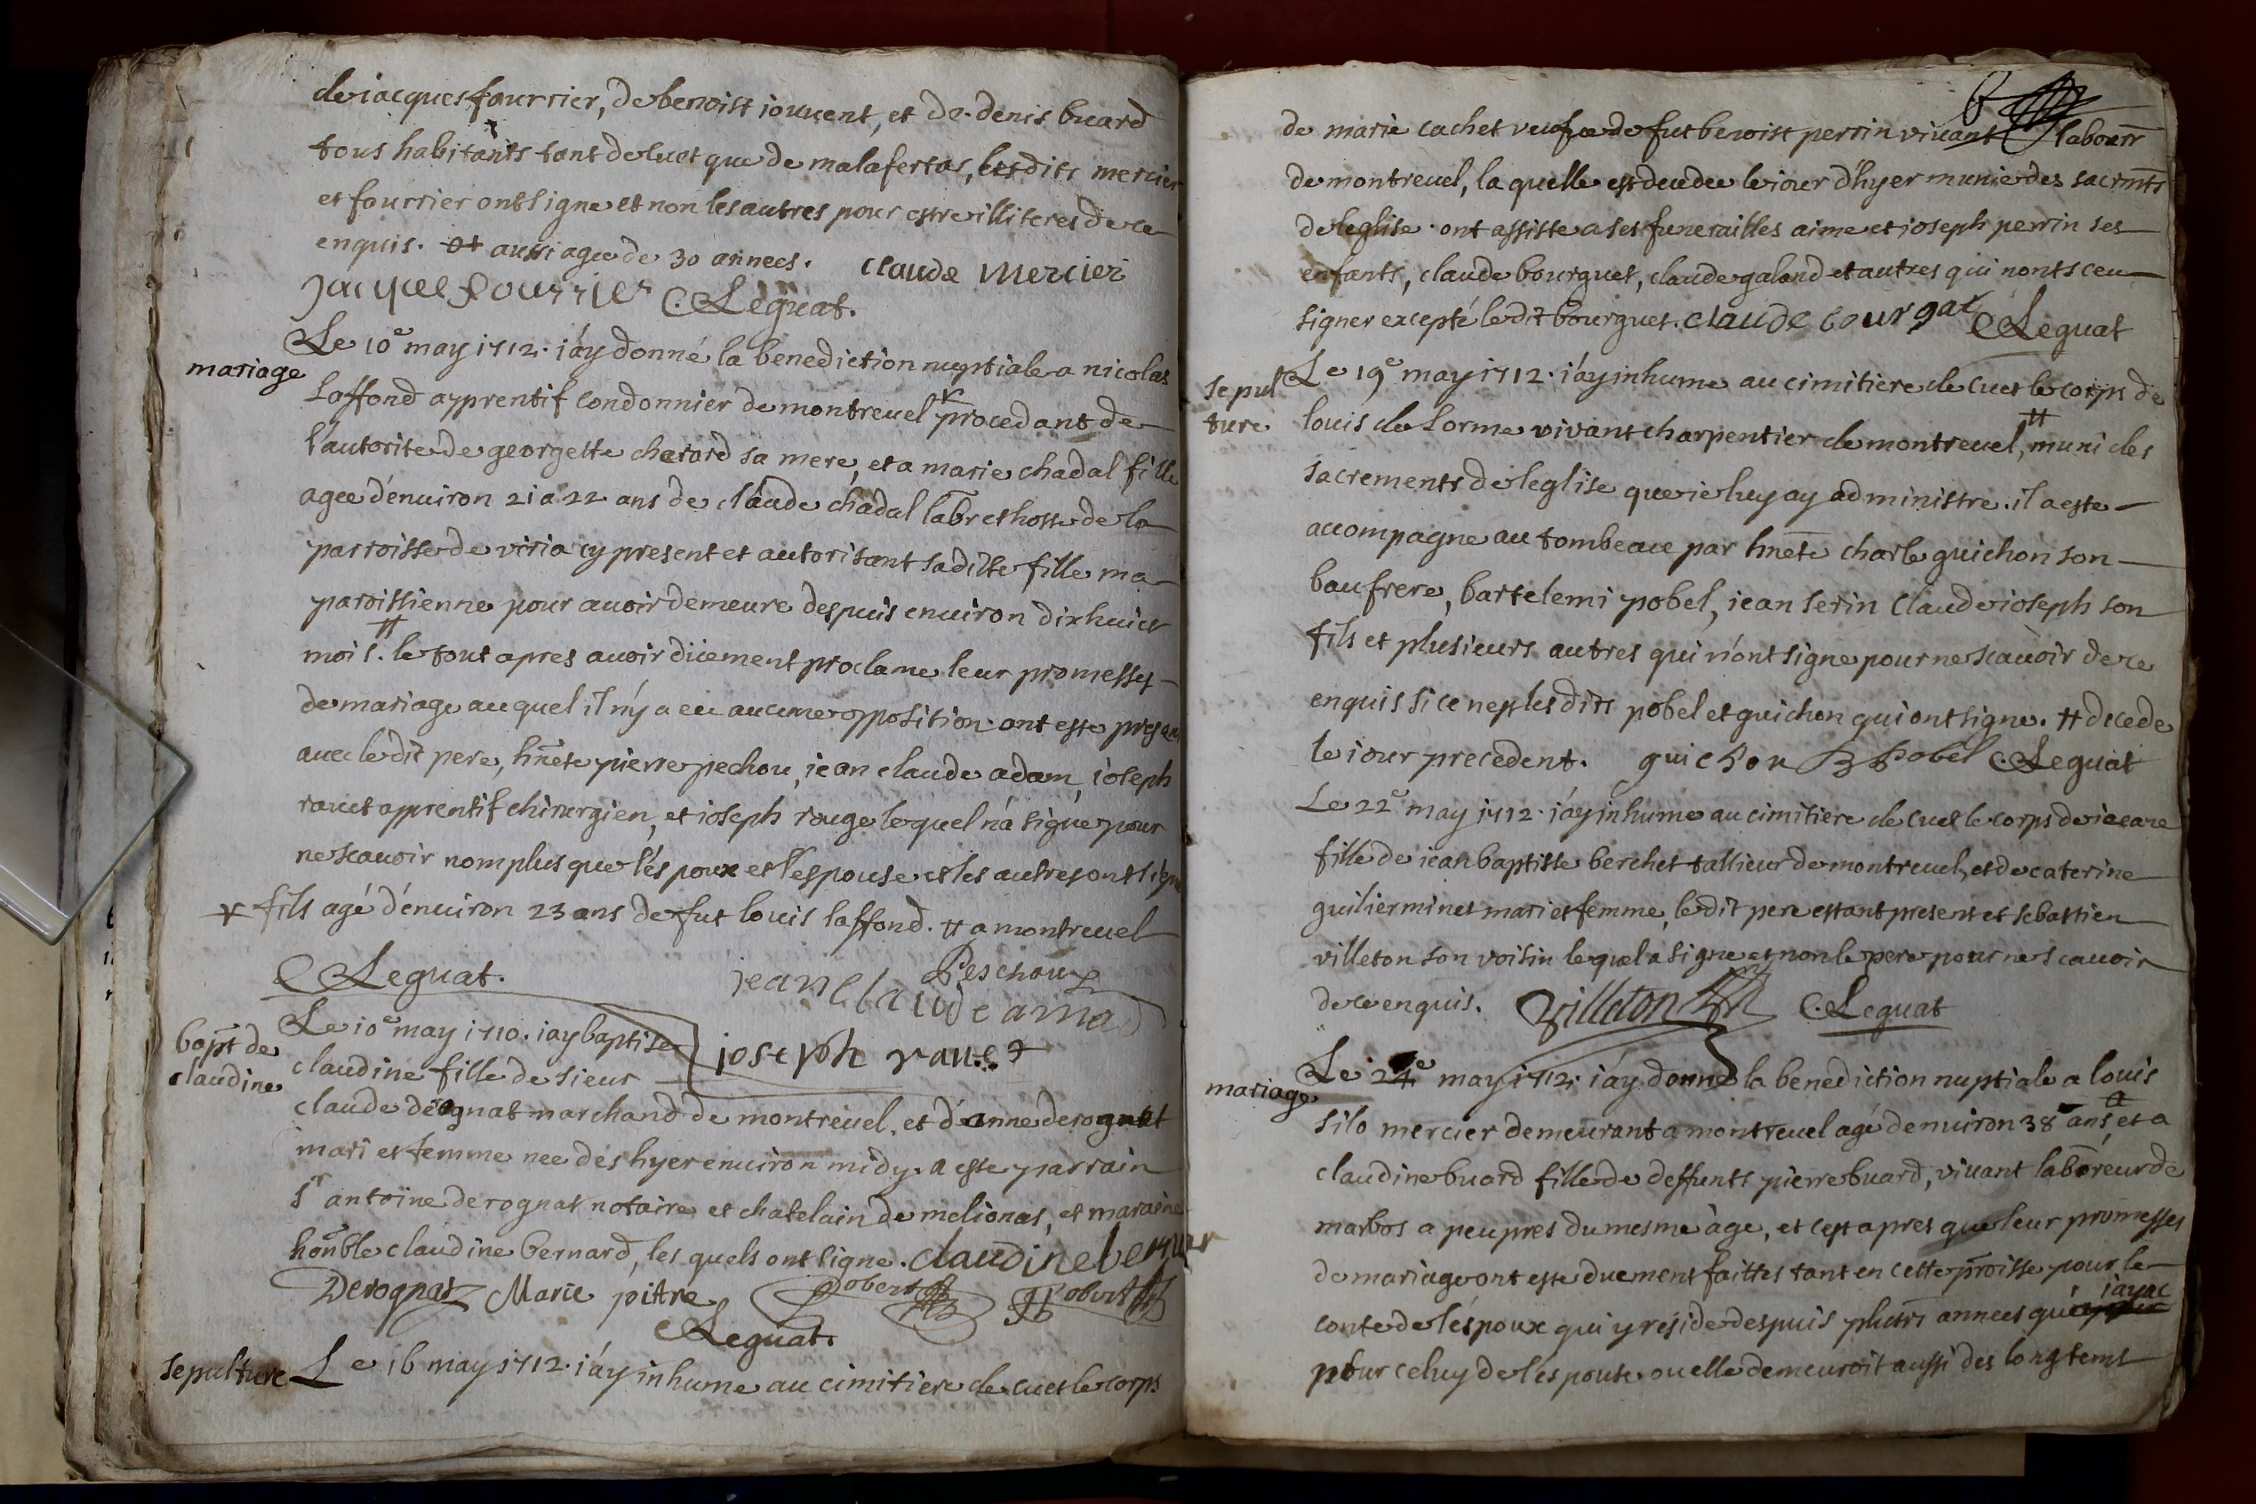 de iacques fourrier, de benoist iouuent, et de denis buard
tous habitants tant de cuet que de malafertas, lesdits mercier
et fourrier ont signe et non les autres pour estre illiteres de ce
enquis. et aussi agee de 30 annees. claude mercier
jacques fourrier C. Leguat.
mariage
Le 10e may 1712. i'ay donné la benediction nuptiale a nicolas
laffond apprentif condonnier de montreuel procedant de
l'autorite de georgette charard sa mere, et a marie chadal fille
agee d'enuiron 21 a 22 ans de claude chadal labr et hoste de la
parroisse de viria cy present et autorisant sa ditte fille ma
paroissienne pour auoir demeure despuis enuiron dixhuict
mois # . le tout apres auoir duement proclame leur promesses
de mariage au quel il n'y a eu aucune opposition. ont este presens
auec le dit pere, hnete pierre pechou, iean claude adam, ioseph
rauet apprentif chirurgien, et ioseph rouge lequel n'a signe pour
ne scauoir nomplus que l'espoux et l'espouse et les autres ont signe
fils agé d'enuiron 23 ans de fut louis laffond. # a montreuel
C. Leguat.
Peschoux
jean claude amad
joseph rauet
bapt de
claudine
Le 10e may 1710. iay baptise
claudine fille de sieur
claude derognat marchand de montreuel, et d'anne derognat
mari et femme nee des hyer enuiron midy. a este parrain
sr antoine derognat notaire et chatelain de melionas, et maraine
honble claudine bernard, les quels ont signe. claudine bernar
Derognat Marie pitre Robert Robert
C. Leguat.
sepulture
Le 16 may 1712. i'ay inhume au cimitiere de cuet le corps
de marie cachet veufue de fut benoist perrin viuant labourr
de montreuel, la quelle est decedee le iour d'hyer munie des sacrmts
de leglise. ont assiste a ses funerailles aime et ioseph perrin ses
enfants, claude bourguet, claude galand et autres qui nont sceu
signer excepté le dit bourguet. claude bourgat C. Leguat
sepul
ture
Le 19e may 1712. i'ay inhume au cimitiere de cuet le corps de
louis de lorme vivant charpentier de montreuel, # muni des
sacrements de leglise que ie luy ay administre. il a este
accompagne au tombeau par hnete charle guichon son
baufrere, bartelemi pobel, iean serin claude ioseph son
fils et plusieurs autres qui n'ont signe pour ne scauoir de ce
enquis si ce nest les dits pobel et guichon qui ont signe. # decede
le iour precedent. guichon B pobel C. Leguat
Le 22e may 1712. i'ay inhume au cimitiere de cuet le corps de ieane
fille de iean baptiste berchet tallieur de montreuel, et de caterine
guilierminet mari et femme, le dit pere estant present et sebastien
villeton son voisin lequel a signe et non le pere pour ne scauoir
de ce enquis. Villeton C. Leguat
mariage
Le 24e may 1712. i'ay donné la benediction nuptiale a louis
silo mercier demeurant a montreuel agé denuiron 38 ans, et a
claudine buard fille de deffunts pierre buard, viuant laboreur de
marbos a peu pres du mesme àge, et cest apres que leur promesses
de mariage ont este duement faittes tant en cette proisse pour le
conte de l'espoux qui y réside despuis plusrs annees que iayac
pour celuy de l'espouse ou elle demeuroit aussi des longtems